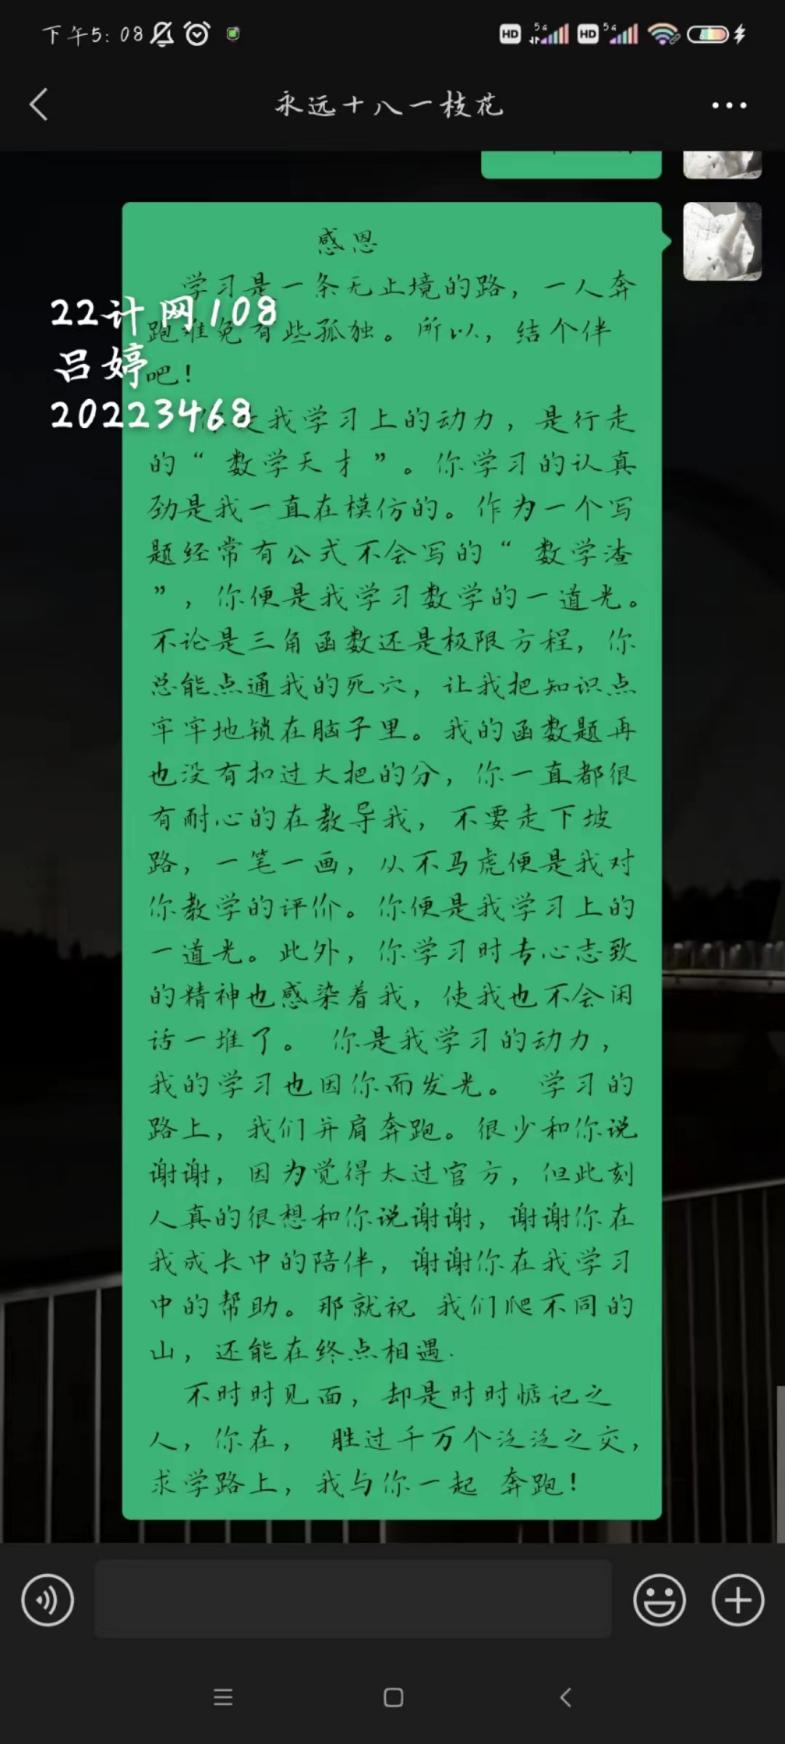 下午5:08
HD 5G HD 5G
永远十八一枝花
感恩
学习是一条无止境的路，一人奔
22计网108
跑难免有些孤独。所以，结个伴
吕婷
吧！
20223468
你是我学习上的动力，是行走
的“数学天才”。你学习的认真
劲是我一直在模仿的。作为一个写
题经常有公式不会写的“数学渣
”，你便是我学习数学的一道光。
不论是三角函数还是极限方程，你
总能点通我的死穴，让我把知识点
牢牢地锁在脑子里。我的函数题再
也没有扣过大把的分，你一直都很
有耐心的在教导我，不要走下坡
路，一笔一画，从不马虎便是我对
你教学的评价。你便是我学习上的
一道光。此外，你学习时专心志致
的精神也感染着我，使我也不会闲
话一堆了。 你是我学习的动力，
我的学习也因你而发光。 学习的
路上，我们并肩奔跑。很少和你说
谢谢，因为觉得太过官方，但此刻
人真的很想和你说谢谢，谢谢你在
我成长中的陪伴，谢谢你在我学习
中的帮助。那就祝 我们爬不同的
山，还能在终点相遇.
不时时见面，却是时时惦记之
人，你在， 胜过千万个泛泛之交，
求学路上，我与你一起 奔跑！